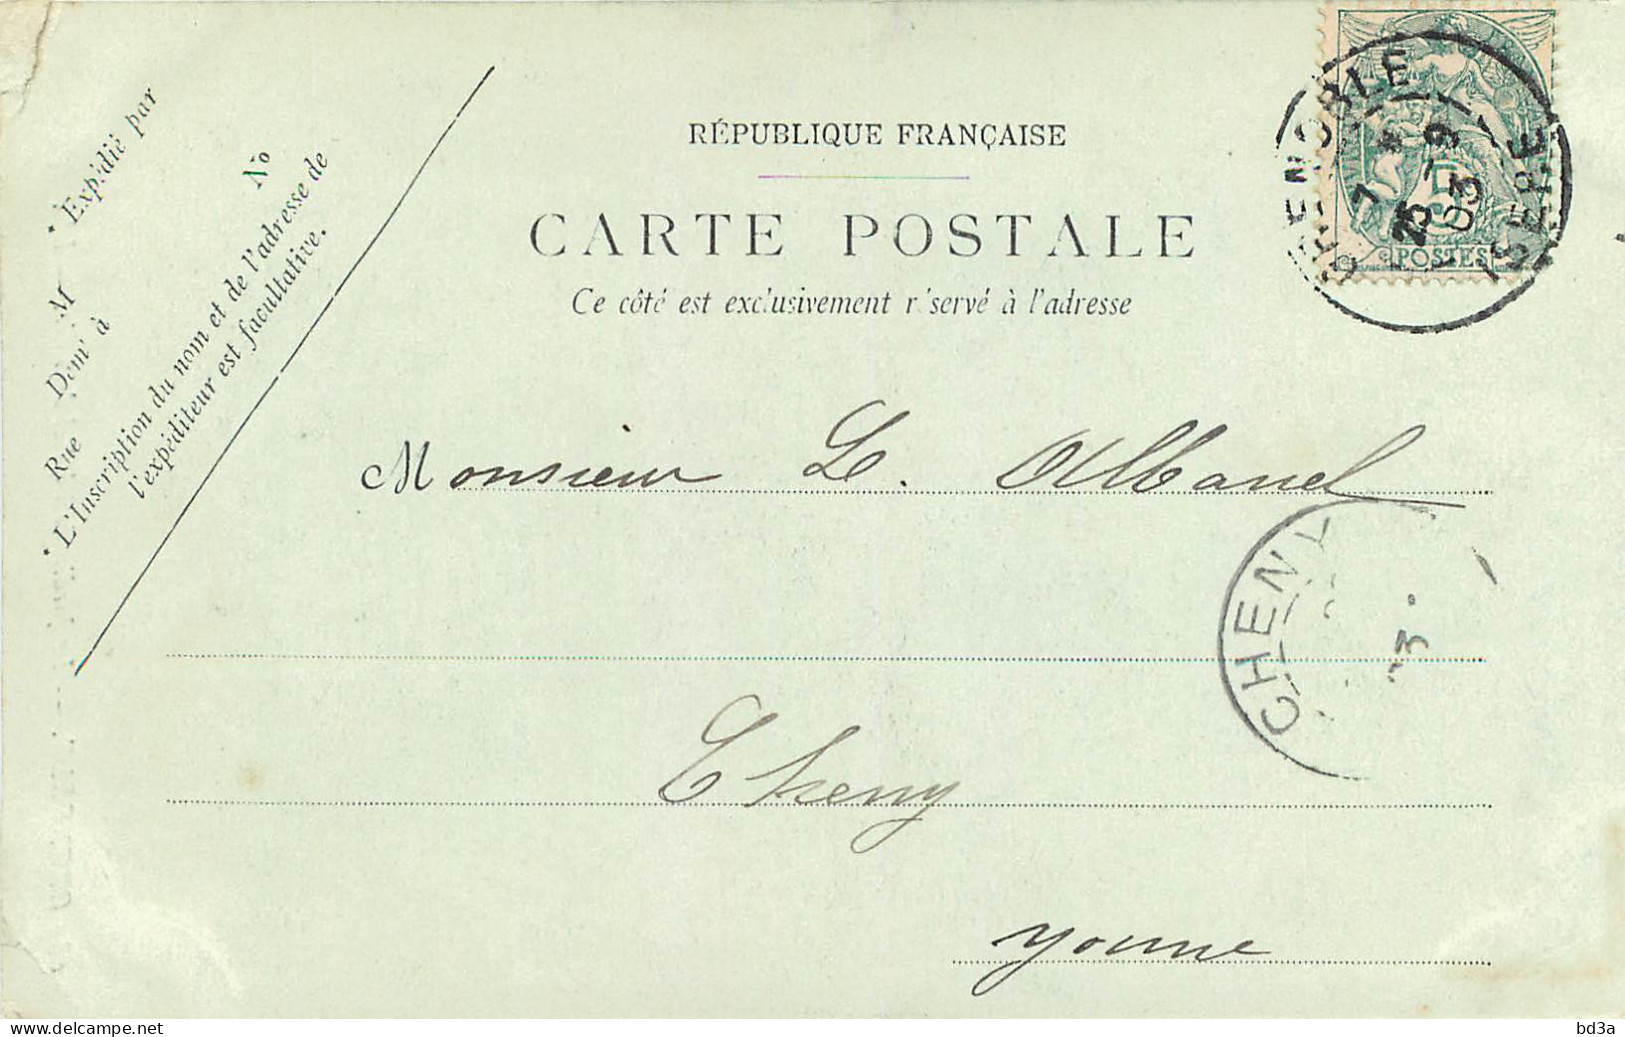 RÉPUBLIQUE FRANÇAISE
CARTE POSTALE
Ce côté est exclusivement réservé à l'adresse
* Expédié par
M
Demt à
Rue No
* L'Inscription du nom et de l'adresse de
l'expéditeur est facultative.
GRENOBLE
7
25 -9
03
ISERE
5
POSTES
Monsieur L. Albanel
CHENY
Cheny
Yonne
www.delcampe.net
bd3a